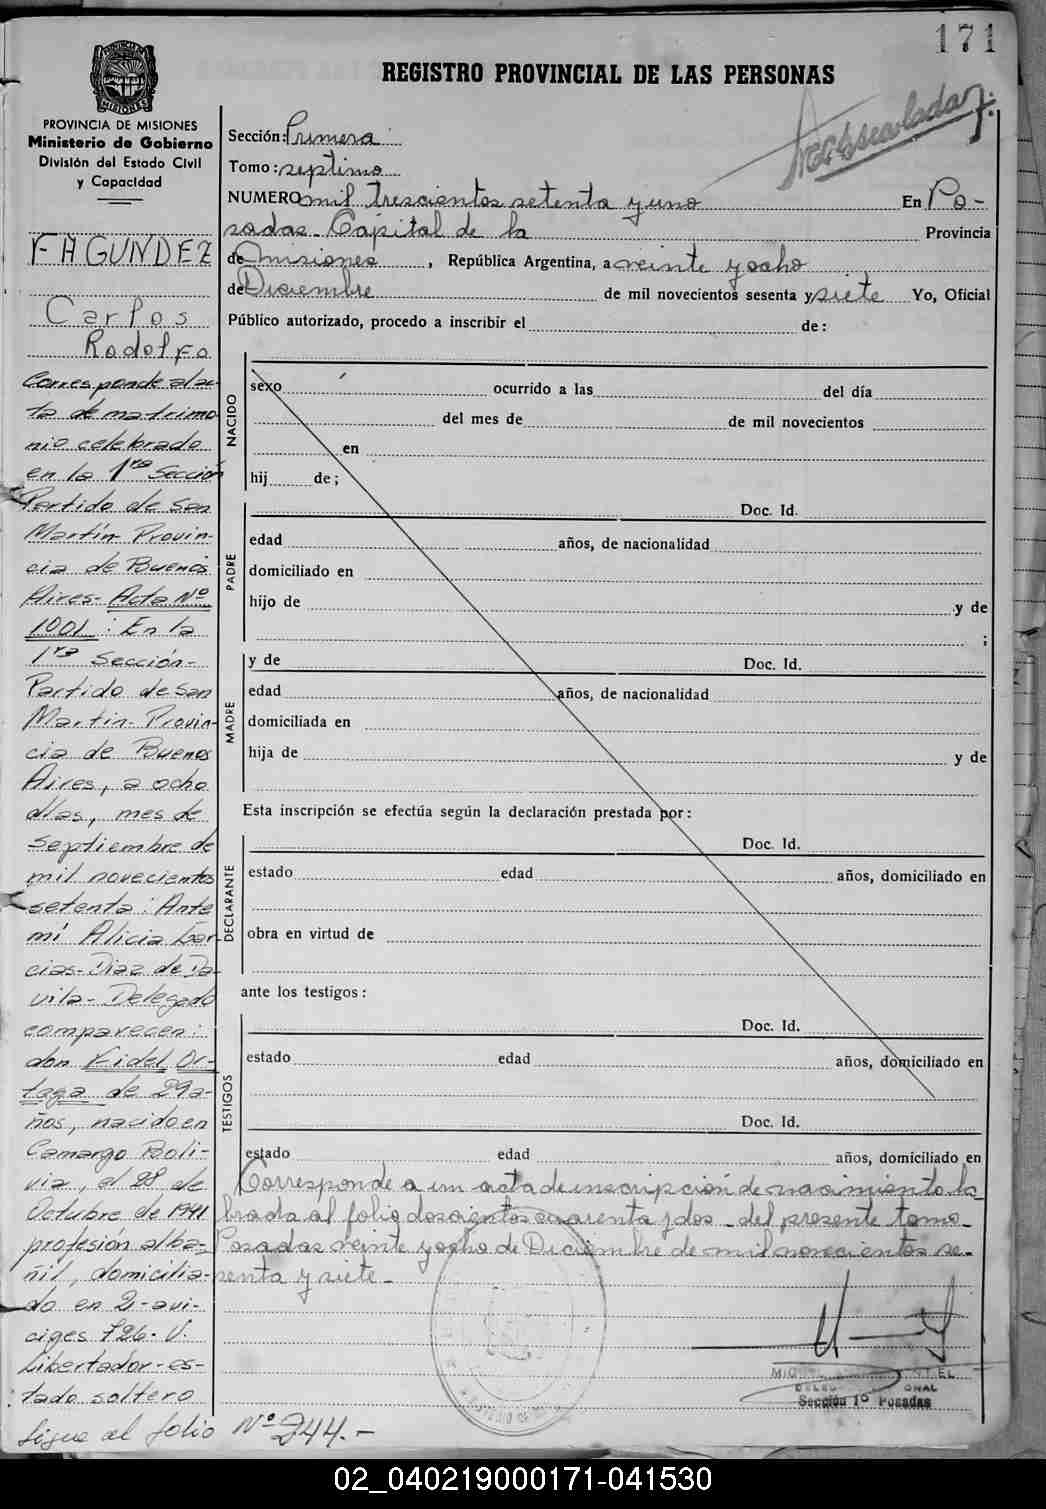 171
PROVINCIA DE MISIONES
Ministerio de Gobierno
División del Estado Civil
y Capacidad
REGISTRO PROVINCIAL DE LAS PERSONAS
Sección: Primera
Tomo: septimo
NUMERO mil trescientos setenta y uno En Po-
sadas Capital de la Provincia
de Misiones, República Argentina, a veinte y ocho
de Diciembre de mil novecientos sesenta y siete Yo, Oficial
Público autorizado, procedo a inscribir el de:
NACIDO
sexo ocurrido a las del día
del mes de de mil novecientos
en
hij de;
PADRE
Doc. Id.
edad años, de nacionalidad
domiciliado en
hijo de y de
;
MADRE
y de Doc. Id.
edad años, de nacionalidad
domiciliada en
hija de y de
Esta inscripción se efectúa según la declaración prestada por:
DECLARANTE
Doc. Id.
estado edad años, domiciliado en
obra en virtud de
ante los testigos:
TESTIGOS
Doc. Id.
estado edad años, domiciliado en
Doc. Id.
estado edad años, domiciliado en
Corresponde a un acta de inscripción de nacimiento la-
brada al folio doscientos cuarenta y dos - del presente tomo-
Posadas veinte y ocho de Diciembre de mil novecientos se-
senta y siete-
Sección 1º Posadas
FAGUNDEZ
Carlos
Rodolfo
Corresponde al ac-
ta de matrimo
nio celebrado
en la 1ra Sección
Partido de San
Martín Provin-
cia de Buenos
Aires- Acta Nº
1001: En la
1ra Sección-
Partido de San
Martin- Provin-
cia de Buenos
Aires, a ocho
días, mes de
septiembre de
mil novecientos
setenta: Ante
mi Alicia Gar-
cias- Diaz de Da-
vila- Delegado
comparecen:
don Fidel Or-
taga de 29 a-
ños, nacido en
Camargo Boli-
via, el 28 de
Octubre de 1941
profesión alba-
ñil, domicilia-
do en
726. V.
Libertador- es-
tado soltero
Sigue al folio Nº 244.-
02_040219000171-041530